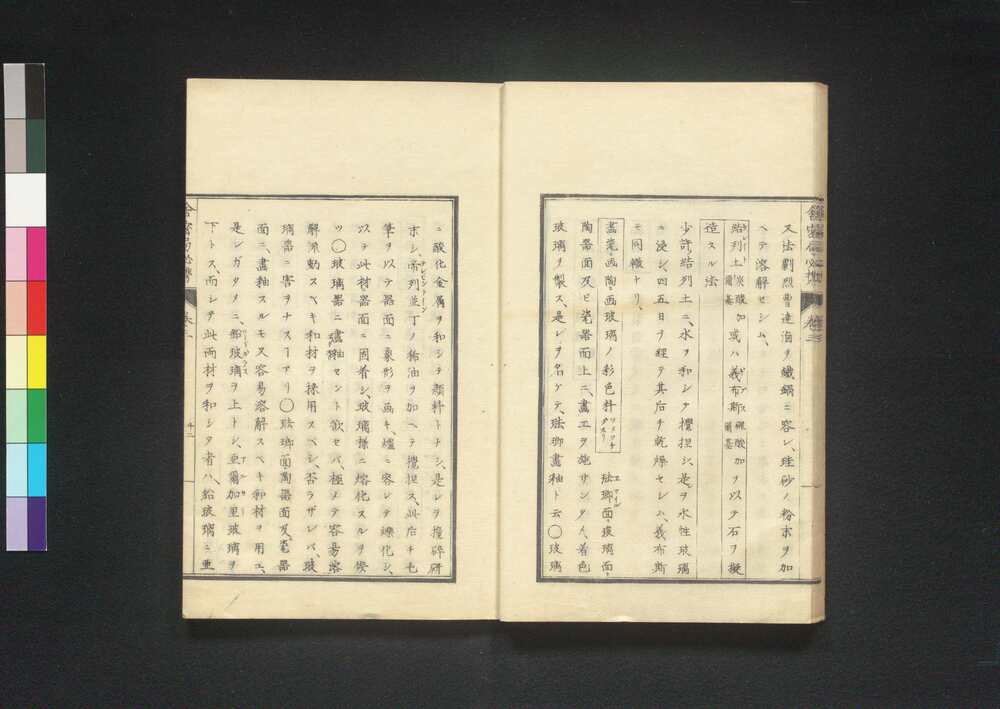 又法劉烈曹達滷ヲ鐵鍋ニ容レ、珪砂ノ粉末ヲ加
ヘテ溶解セシム、
結列土 炭酸加爾基 或ハ義布斯 硫酸加爾基 ヲ以テ石ヲ擬
造スル法
少許結列土ニ、水ヲ和シテ攪担シ、是ヲ水性玻璃
ニ浸シ、四五日ヲ經テ其后チ乾燥セレム、義布斯
モ同轍ナリ、
畫瓷・画陶・画玻璃ノ彩色料 琺瑯面・玻璃面、
陶器面及ヒ瓷器面上ニ、畫工ヲ施サンタメ、着色
玻璃ヲ製ス、是レヲ名ケテ、琺瑯畫釉ト云〇玻璃
ニ酸化金属ヲ和シテ顔料トナシ、是レヲ擣碎研
シ、帝列並丁ノ稀油ヲ加ヘテ攪担ス、此后チ毛
筆ヲ以テ器面ニ象形ヲ画キ、爐ニ容レテ爍化シ、
以テ此材器面ニ固着シ、玻璃様ニ熔化スルヲ俟
ツ〇玻璃器ニ畫釉セント欲セバ、極メテ容易溶
解流動スヘキ和材ヲ採用スベシ、否ラザレバ、玻
璃器ニ害ヲナスヿアリ〇琺瑯面陶器面及瓷器
面ニ、畫釉スルモ又容易溶解スヘキ和材ヲ用エ、
是レガタメニ、鉛玻璃ヲ上トシ、亜爾加里玻璃ヲ
下トス、而シテ此両材ヲ和シタ者ハ、鉛玻璃ニ亜